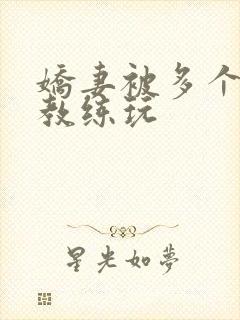 嬌妻被多个
教练玩
星光如夢